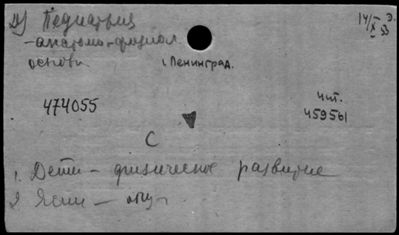 Педиатрия
14/IX 53
-анатомо-физиол.
основы
г. Ленинград.
474055
чит.
459561
С
1. Дети - физическое развитие
2 Ясли -